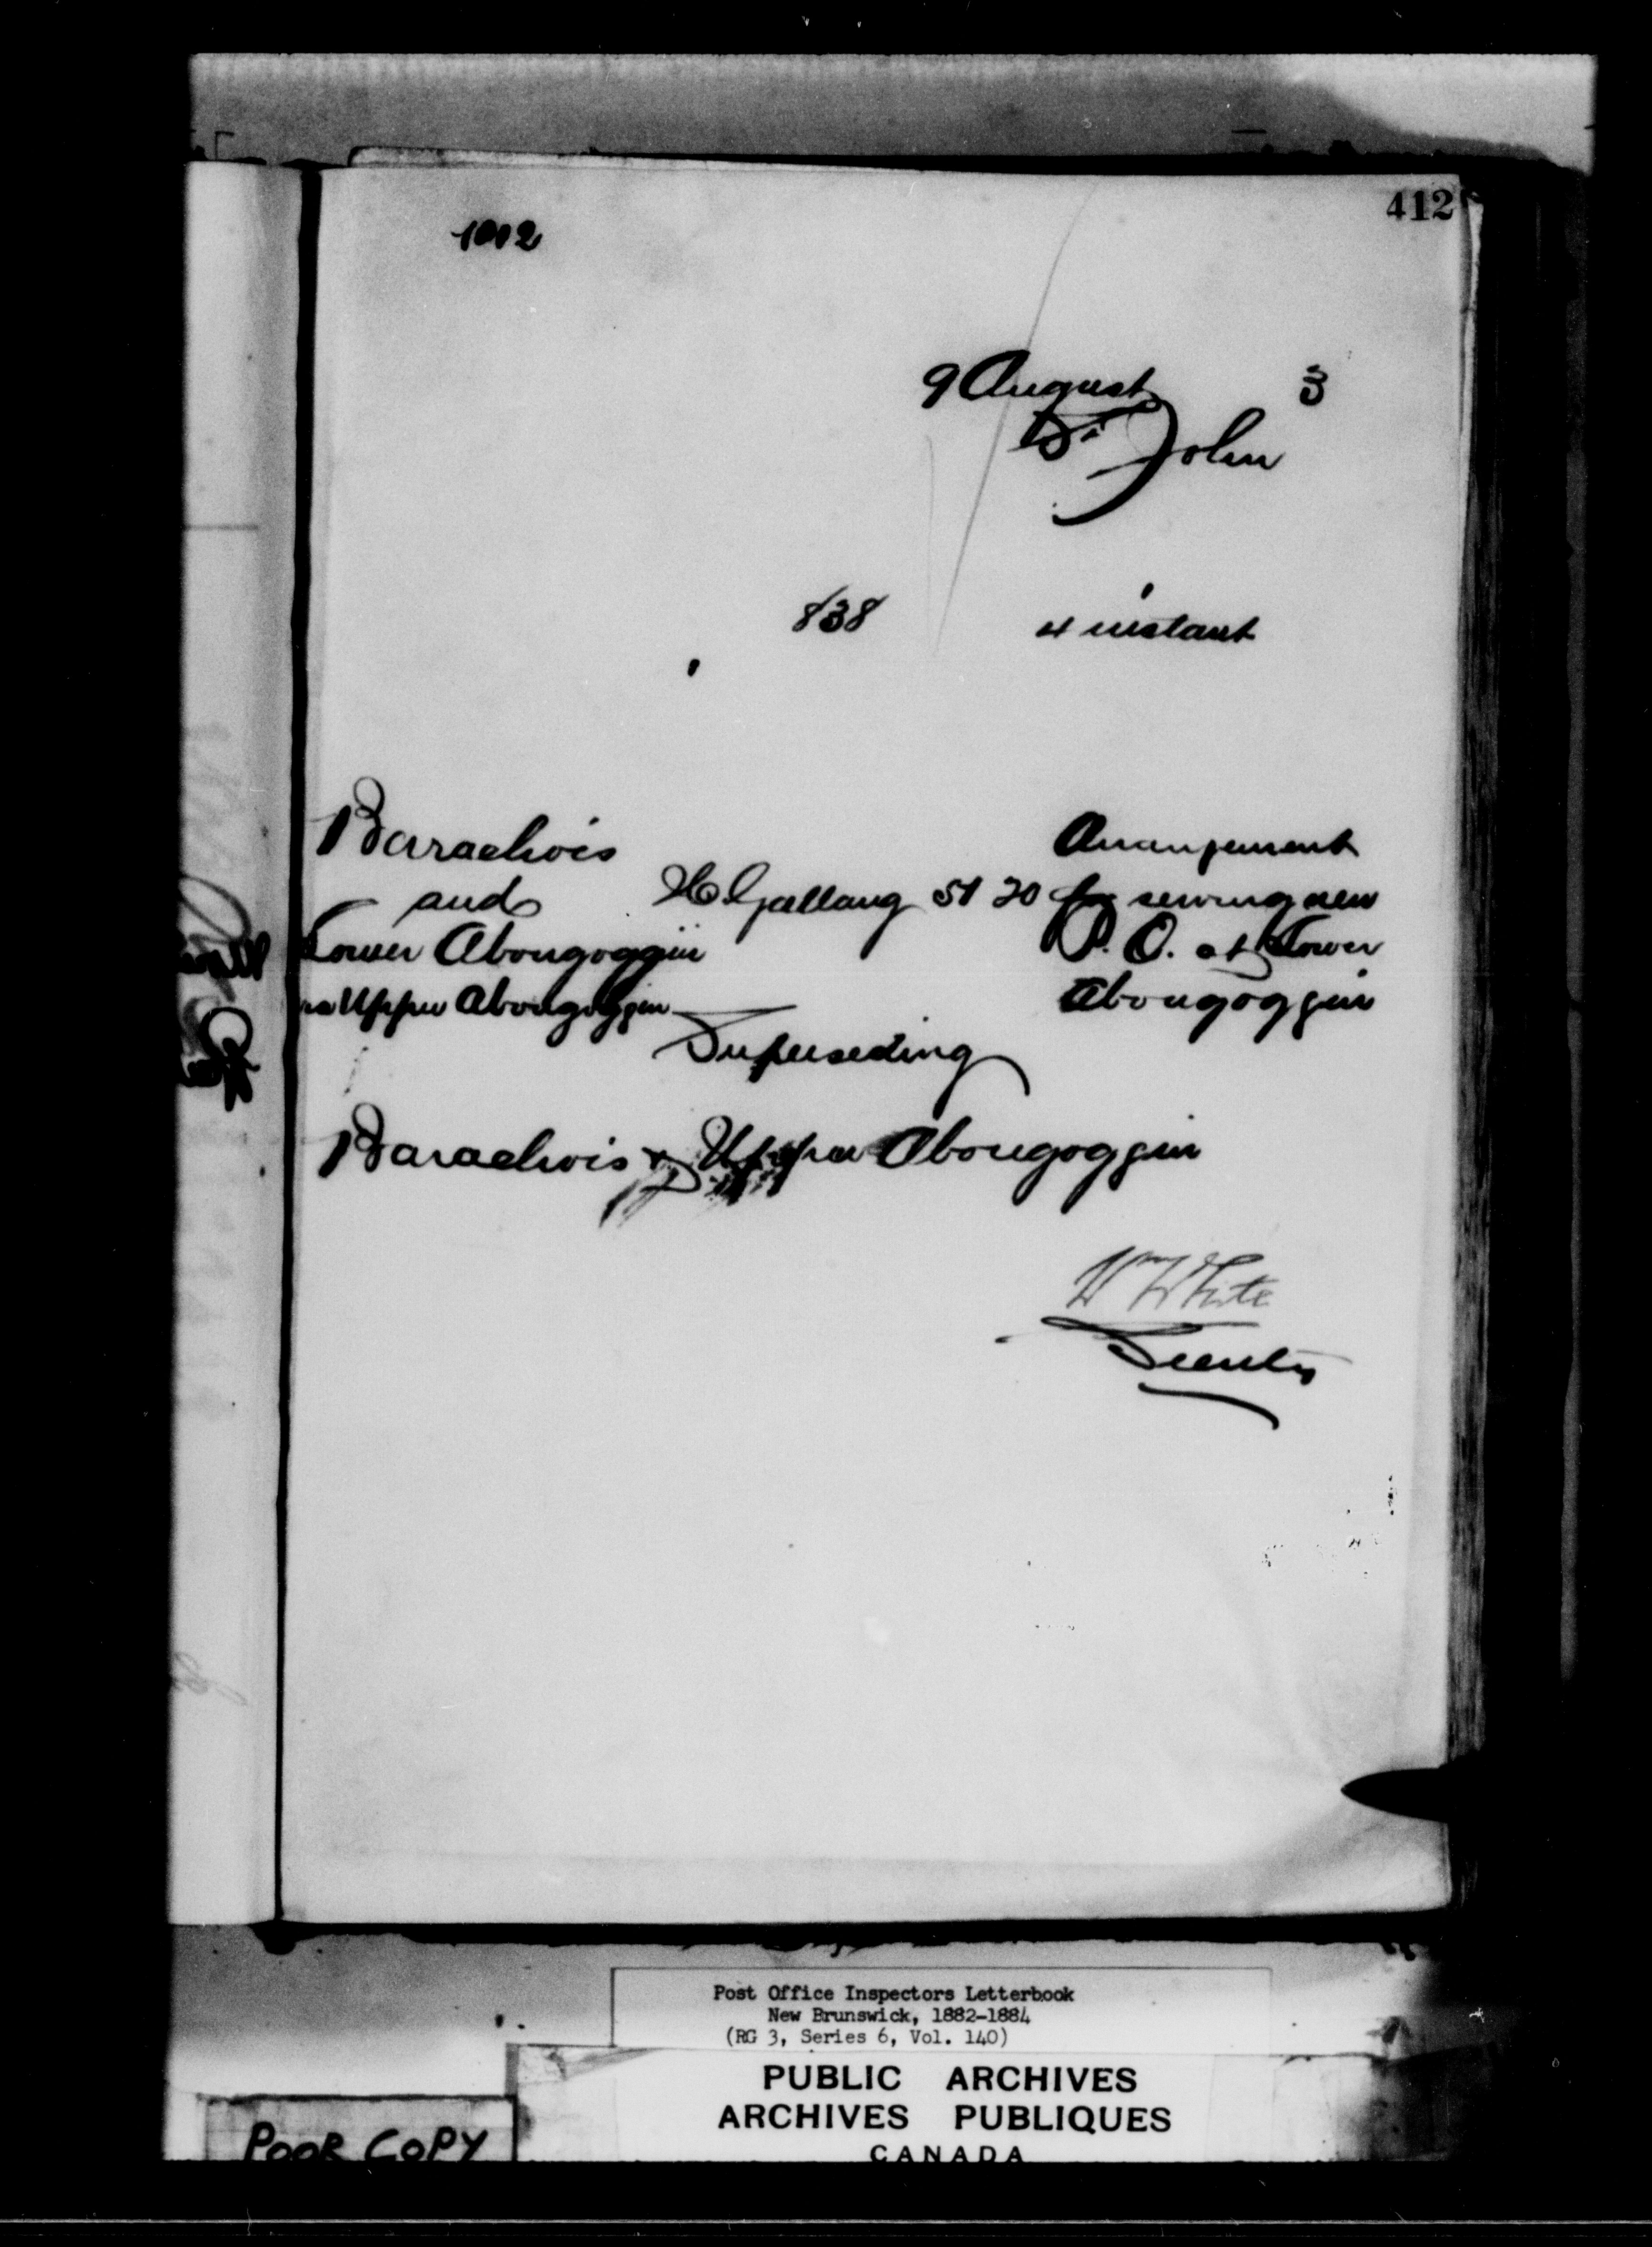 412
1002
9 August 3
St John
838 4 instant
Barachois Arrangement
and H Gallang 51 20 for serving new
Lower Abougoggin P. O. at Lower
via Upper Abougoggin Abougoggin
Superseding
Barachois & Upper Abougoggin
Wm White
Secrety
Post Office Inspectors Letterbook
New Brunswick, 1882-1884
(RG 3, Series 6, Vol. 140)
PUBLIC ARCHIVES
ARCHIVES PUBLIQUES
CANADA
POOR COPY